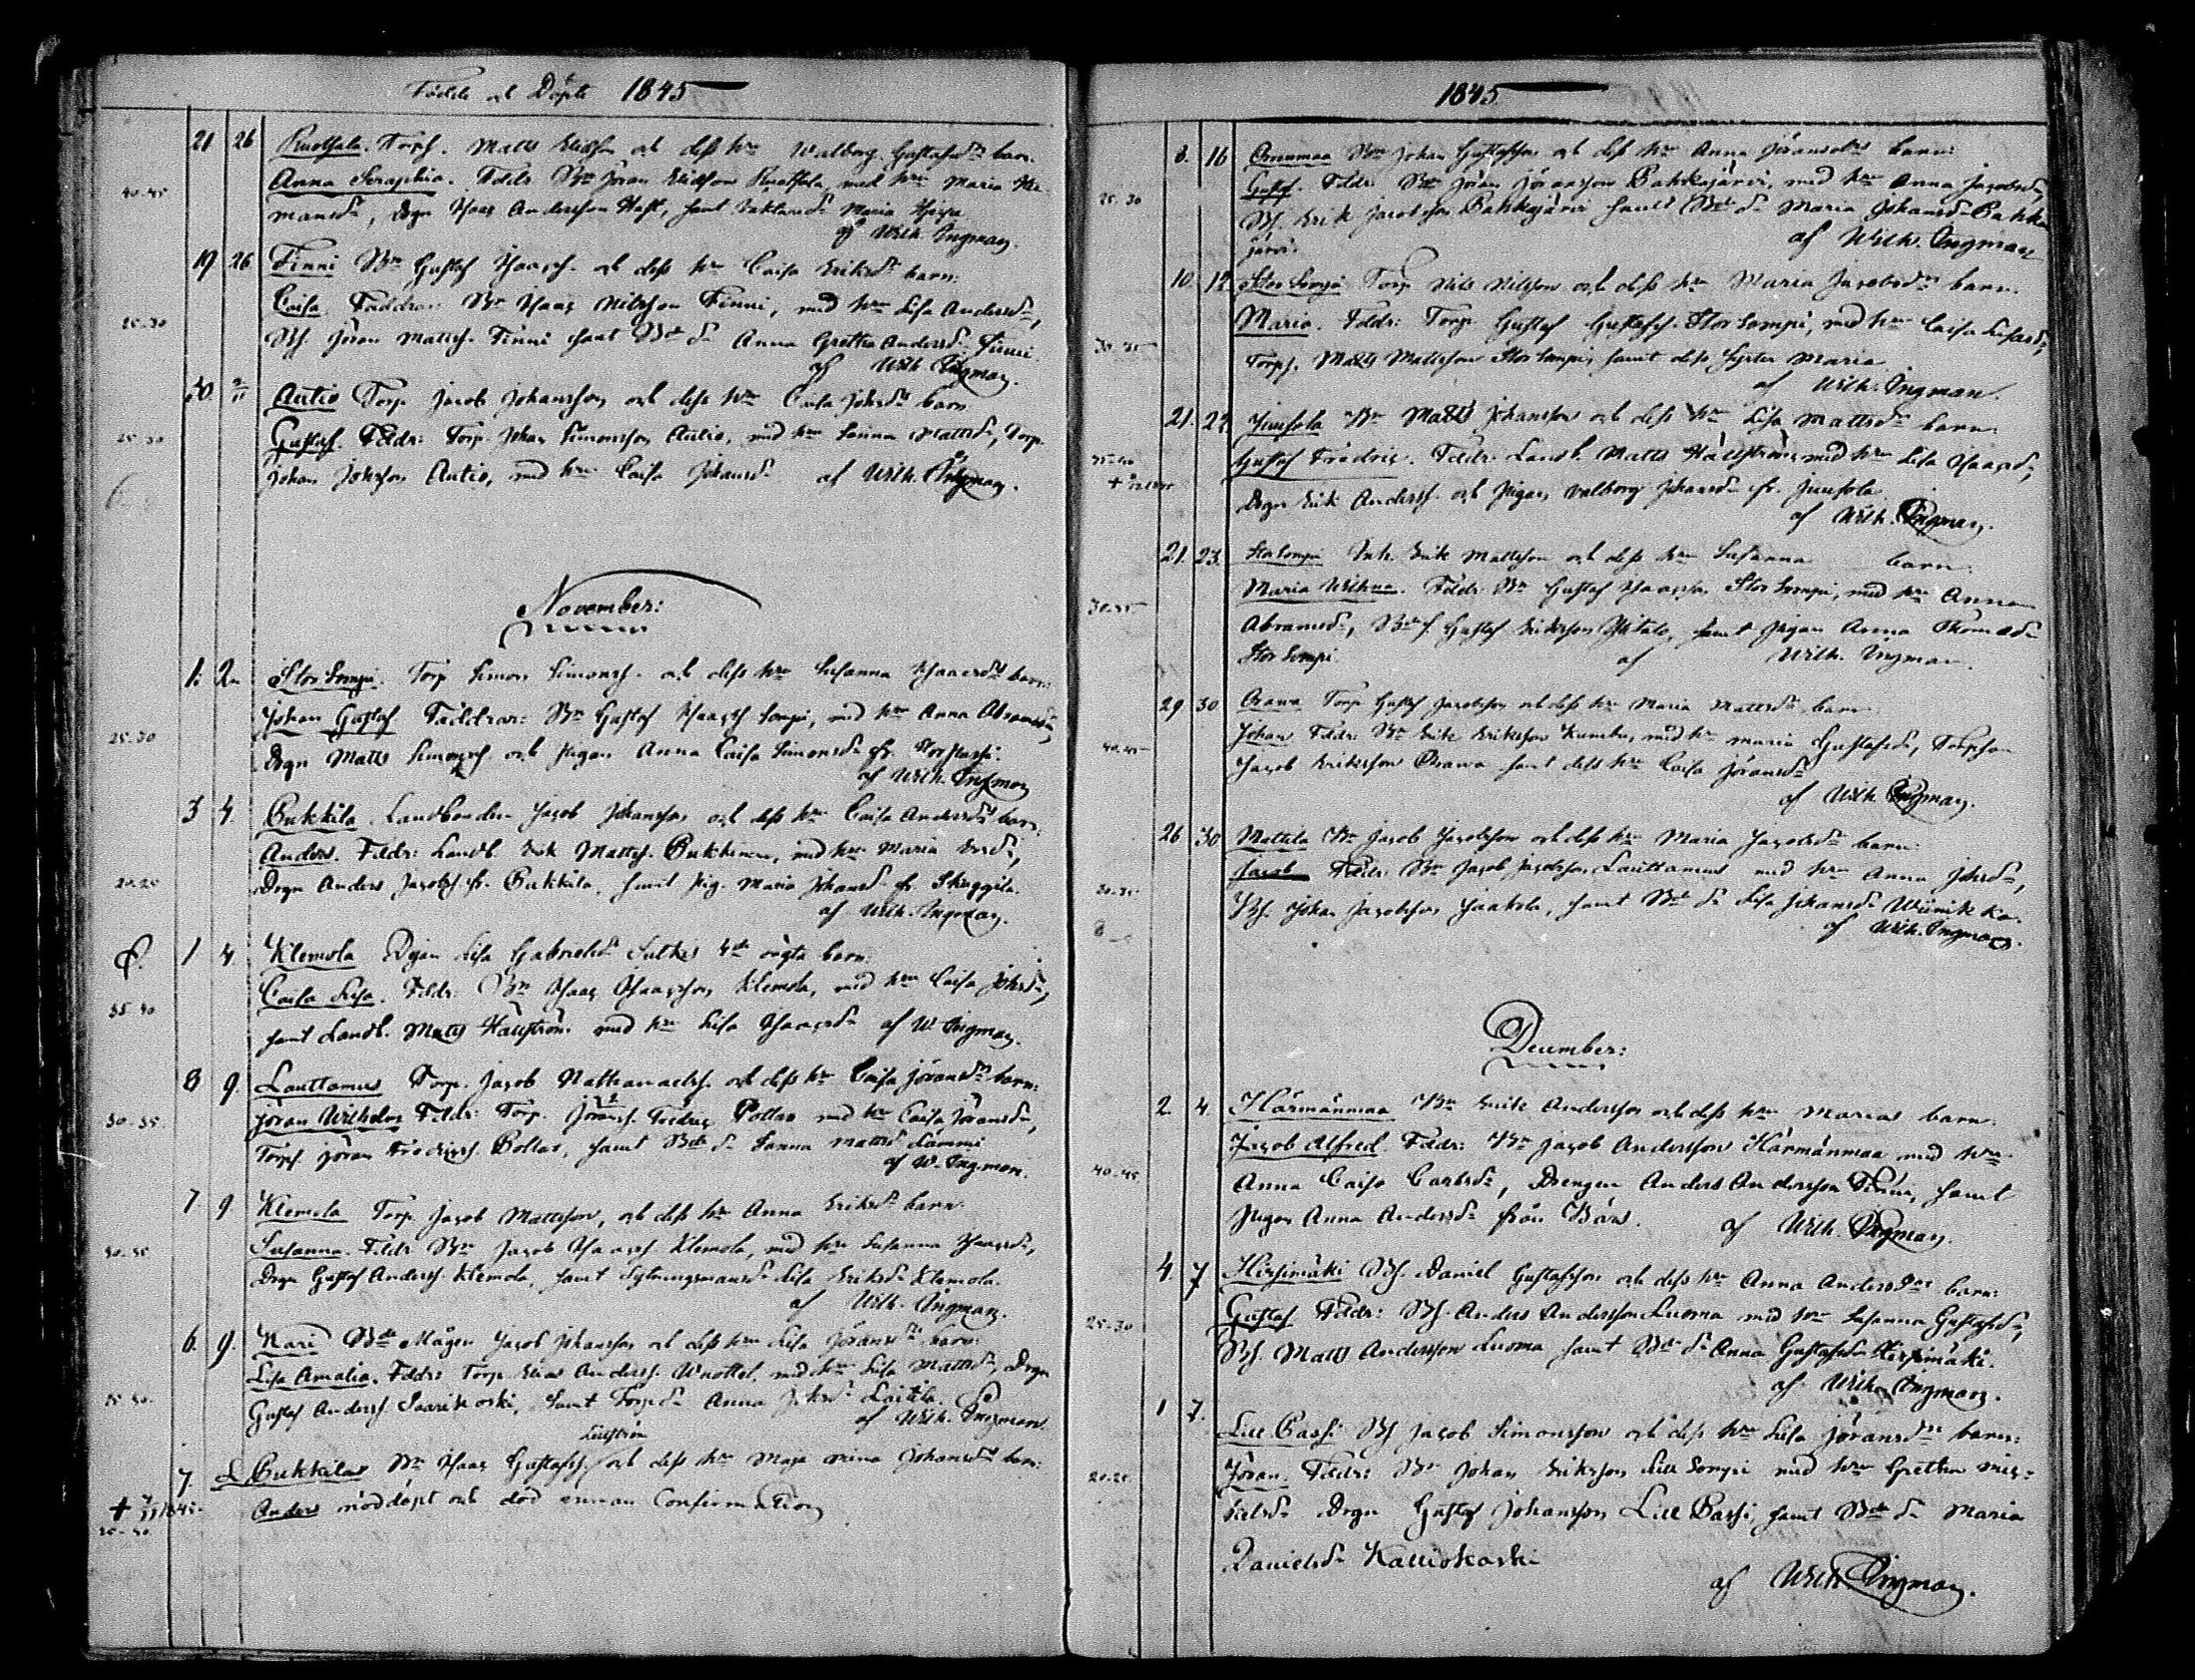 Födde och Döpte 1845
21 26 Ruotsala. Torp. Matts Elisson och dess hu Walborg Gustafsdrs barn.
40-45 Anna Seraphia. Fddr. Bn Jöran Elisson Ruotsala med hu Maria
mansdr, Drgn Isaac Andersson samt Maria
af Wilh. Ingman.
19 26 Finni Bn Gustaf Isaacss. och dess hu Caisa Eriksdrs barn:
25-30 Caisa. Faddrar: Bn Isaac Nilsson Finni, med hu Lisa Andersdr,
Bs. Jöran Mattss. Finni samt Bde dr Anna Gretha Andersdr Finni.
af Wilh. Ingman.
30. 2/11 Autio Torp. Jacob Johansson och dess hu Caisa Johsdrs barn
25-30 Gustaf. Fddr: Torp. Johan Simonsson Autio, med hu Sanna Mattsdr, Torp.
Johan Johsson Autio, med hu Caisa Johansdr af Wilh. Ingman.
November:
1. 2. Stor Sompi. Torp Simon Simonss. och dess hu Susanna Isaacsdrs barn:
Johan Gustaf Faddrar: Bn Gustaf Isaacss Sompi, med hu Anna Abramsdr,
25-30 Drgn Matts Simonss. och Pigan Anna Caisa Simonsdr fr. Stor Passi.
af Wilh. Ingman
3 4 Pukkila Landbonden Jacob Johansson och dess hu Caisa Andersdrs barn:
Anders. Fddr: Landb. Erik Mattss. Pukkinen, med hu Maria Ersdr,
20-25 Drgn Anders Jacobss fr. Pukkila, samt Pig. Maria Johansdr fr. Skuggila.
af Wilh. Ingman.
1 4 Klemola Pigan Lisa Gabrielsdr Sutkis 4de oägta barn:
Caisa Lisa. Fddr: Bn Isaac Isaacsson Klemola, med hu Caisa Johsdr,
35-40 samt Landb. Matts Hällström med hu Lisa Isaacsdr af W. Ingman.
8 9 Lauttamus Torp. Jacob Nathanaelss. och dess hu Caisa Jöransdrs barn:
30-35 Jöran Wilhelm Fddr: Torp. Jöranss. Fredric Pollas med hu Caisa Jöransdr,
Torps. Jöran Fredricss. Pollas, samt Bde dr Sanna Mattsdr Lammi
af W. Ingman.
7. 9 Klemola Torp. Jacob Mattsson, och dess hu Anna Eriksdrs barn
30-35 Susanna. Fddr Bn Jacob Isaacss Klemola, med hu Susanna Isaacsdr,
Drgn Gustaf Anderss. Klemola, samt Sytningsmansdr Lisa Eriksdr Klemola.
af Wilh. Ingman.
6. 9. Kari Bde Mågen Jacob Johansson och dess hu Lisa Jöransdrs barn:
Lisa Amalia. Fddr: Torp. Elias Anderss. Wuottel, med hu Lisa Mattsdr, Drgn
25-30. Gustaf Anderss Saarikoski, samt Torp.dr Anna Johsdr Laitila.
af Wilh. Ingman.
7. L. Pukkilas Bn Isaac Gustafss. Lillström och dess hu Maja Mina Johansdrs barn:
Anders nöddöpt och död innan Confirmation
1845
8. 16 Orrenmaa Bn Johan Gustafsson och dess hu Anna Jöransdrs barn:
25-30 Gustaf. Fddr: Bn Jöran Jöransson Pahkajärvi, med hu Anna Jacobsdr,
Bs. Erik Jacobsson Pahkajärvi samt Bde dr Maria Johansdr Pahka
järvi. af Wilh. Ingman
10. 12 Stor Sompi Torp. Nils Nilsson och dess hu Maria Jacobsdrs barn.
30-35 Maria. Fddr: Torp. Gustaf Gustafss. Stor Sompi, med hu Caisa
Torps. Matts Mattsson Stor Sompi, samt dess Syster Maria
af Wilh. Ingman.
21. 22 Juusola Bn Matts Johansson och dess hu Lisa Mattsdrs barn:
Gustaf Fredric. Fddr: Landb. Matts Hällström, med hu Lisa Isaacsdr,
Drgn Erik Anderss. och Pigan Walborg Johansdr fr. Juusola
af Wilh. Ingman.
21. 23. Stor Sompi Inh. Erik Mattsson och dess hu Susanna barn:
30-35 Maria Wilhna. Fddr: Bn Gustaf Isaacss. Stor Sompi, med hu Anna
Abramsdr, Bde s. Gustaf Eriksson Ylitalo, samt Pigan Anna Thomasdr
Stor Sompi af Wilh. Ingman.
29 30 Orawa Torp. Gustaf Jacobsson och dess hu Maria Mattsdrs barn
40-45 Johan Fddr: Bn Erik Eriksson med hu Maria Gustafsdr, Torpson
Jacob Eriksson Orawa samt dess hu Caisa Jöransdr
af Wilh. Ingman.
26 30 Mattila Bn Jacob Jacobsson och dess hu Maria Jacobsdrs barn:
30-35 Jacob Fddr: Bn Jacob Jacobsson Lauttamus med hu Anna Johsdr,
Bs. Johan Jacobsson Jaakola, samt Bde dr Lisa Johansdr Wiinikka.
af Wilh. Ingman.
December:
2. 4. Härmänmaa Bn Erik Andersson och dess hu Marias barn:
Jacob Alfred. Fddr: Bn Jacob Andersson Härmänmaa med hu
40-45 Anna Caisa Carlsdr, Drengen Anders Andersson Finni, samt
Pigan Anna Andersdr från af Wilh. Ingman.
4. 7 Hirsimäki Bs. Daniel Gustafsson och dess hu Anna Andersdrs barn:
25-30 Gustaf Fddr: Bs. Anders Andersson Luoma med hu Susanna Gustafsdr,
Bs. Matts Andersson Luoma samt Bde dr Anna Gustafsdr Hirsimäki.
af Wilh. Ingman.
1 7. Lill Passi Bs Jacob Simonsson och dess hu Lisa Jöransdrs barn:
20-25 Jöran. Fddr: Bn Johan Eriksson Lill Sompi med hu Gretha Mic-
kelsdr Drgn Gustaf Johansson Lill Passi, samt Bde dr Maria
Danielsdr Kalliokoski
af Wilh. Ingman.